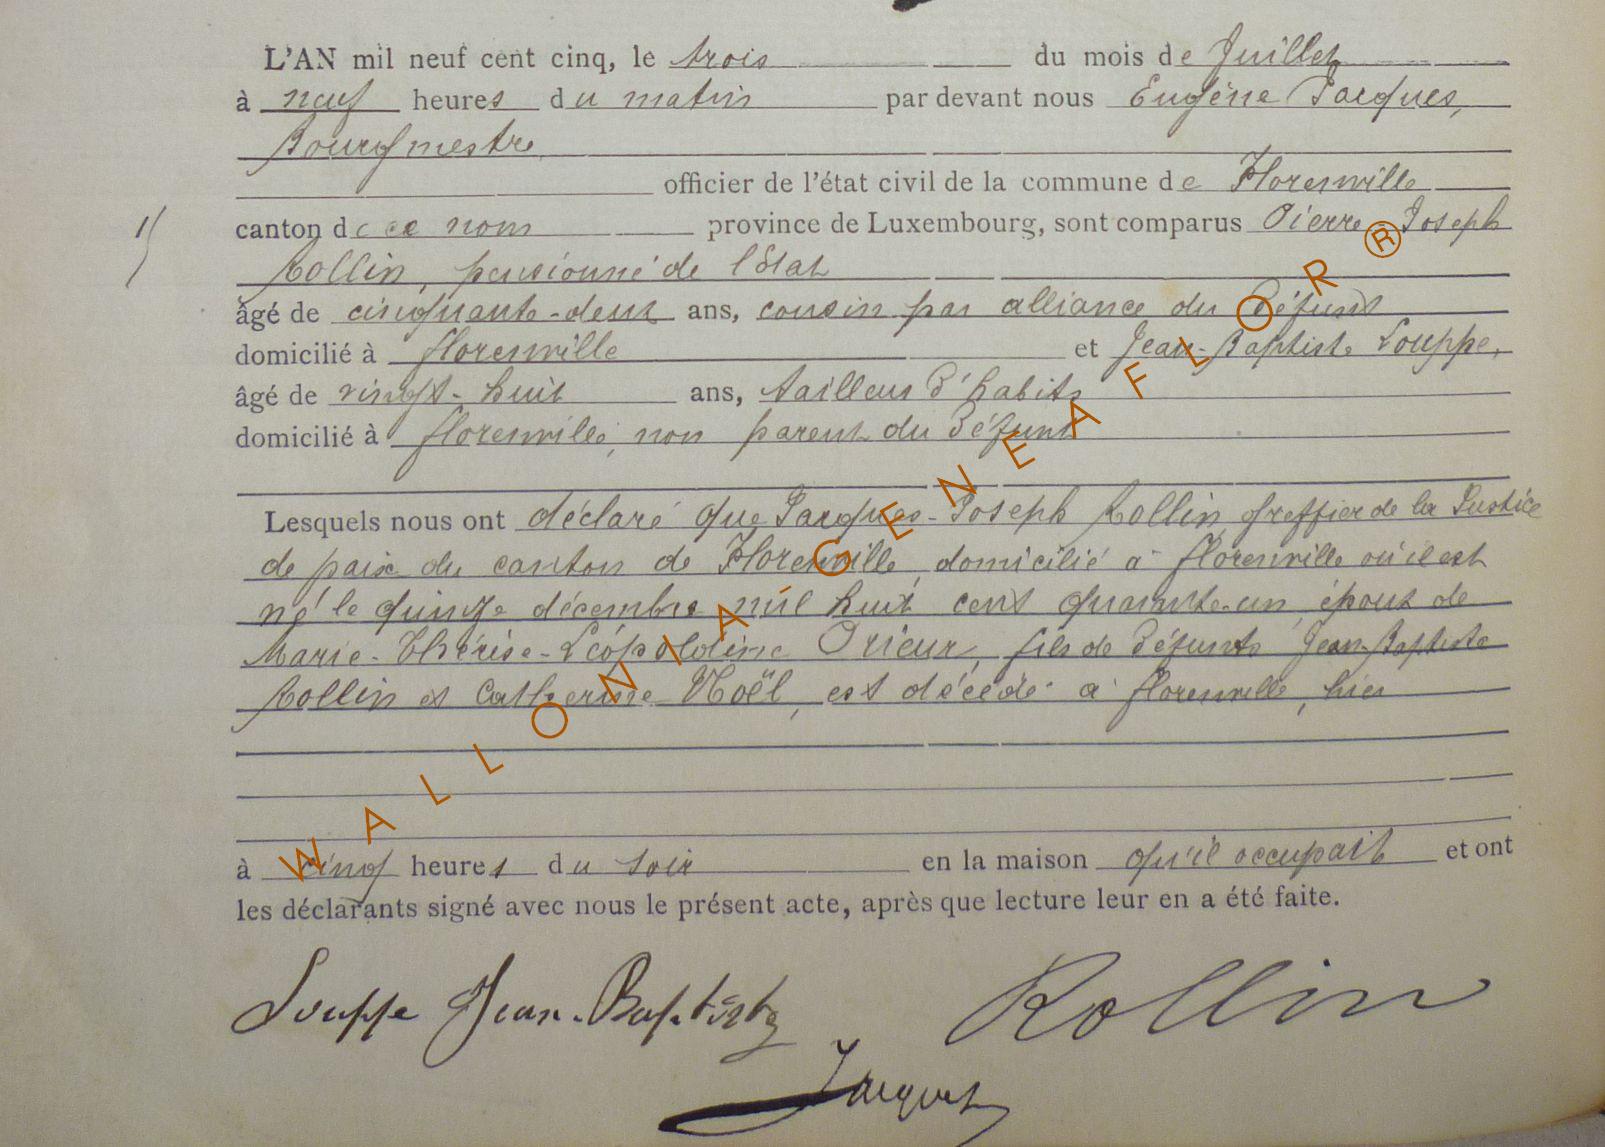 L'AN mil neuf cent cinq, le trois du mois de Juillet
à neuf heures du matin par devant nous Eugène Jacques,
Bourgmestre
officier de l'état civil de la commune de Florenville
canton de ce nom province de Luxembourg, sont comparus Pierre-Joseph
Rollin, pensionné de l'Etat
âgé de cinquante-deux ans, cousin par alliance du défunt
domicilié à florenville et Jean-Baptiste Louppe,
âgé de vingt-huit ans, tailleur d'habits
domicilié à florenville, non parent du défunt
Lesquels nous ont déclaré que Jacques-Joseph Rollin, greffier de la Justice
de paix du canton de Florenville, domicilié à florenville où il est
né le quinze décembre mil huit cent quarante-un, époux de
Marie-Thérèse-Léopoldine Orieux, fils de défunts Jean-Baptiste
Rollin et Catherine Noël, est décédé à florenville, hier
à cinq heures du soir en la maison qu'il occupait et ont
les déclarants signé avec nous le présent acte, après que lecture leur en a été faite.
Louppe Jean-Baptiste Rollin
Jacques
WALLONIA GENEAFLOR®